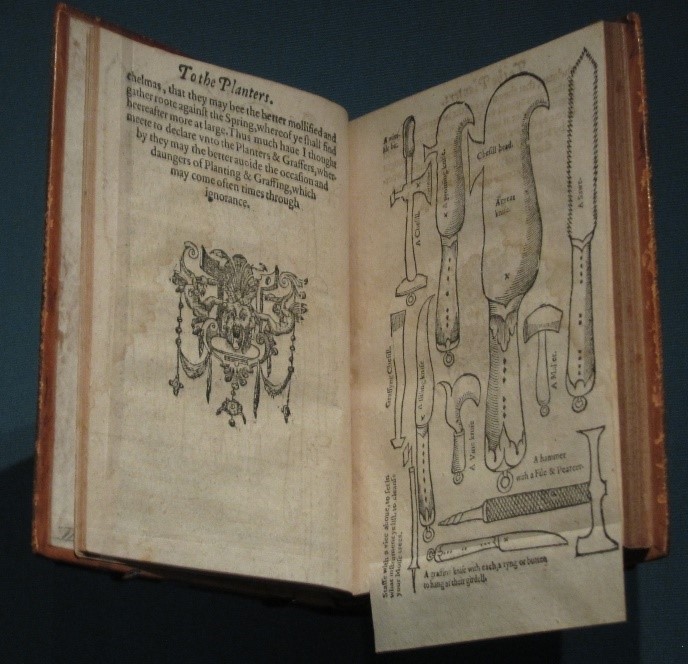 To the Planters.
chelmas, that they may bee the better mollified and
gather roote against the Spring, whereof ye shall find
heereafter more at large. Thus much haue I thought
meete to declare vnto the Planters & Graffers, wher-
by they may the better auoide the occasion and
daungers of Planting & Graffing, which
may come often times through
ignorance.
A Chesill.
A pruning knife.
Chesill head.
knife.
A Sawe.
Graffing Chesill.
A slicing knife
A Vine knife
A Mallet.
A hammer
with a File & Pearcer.
A graffing knife with each, a ryng or button
to hang at their girdell.
your Mosse trees.